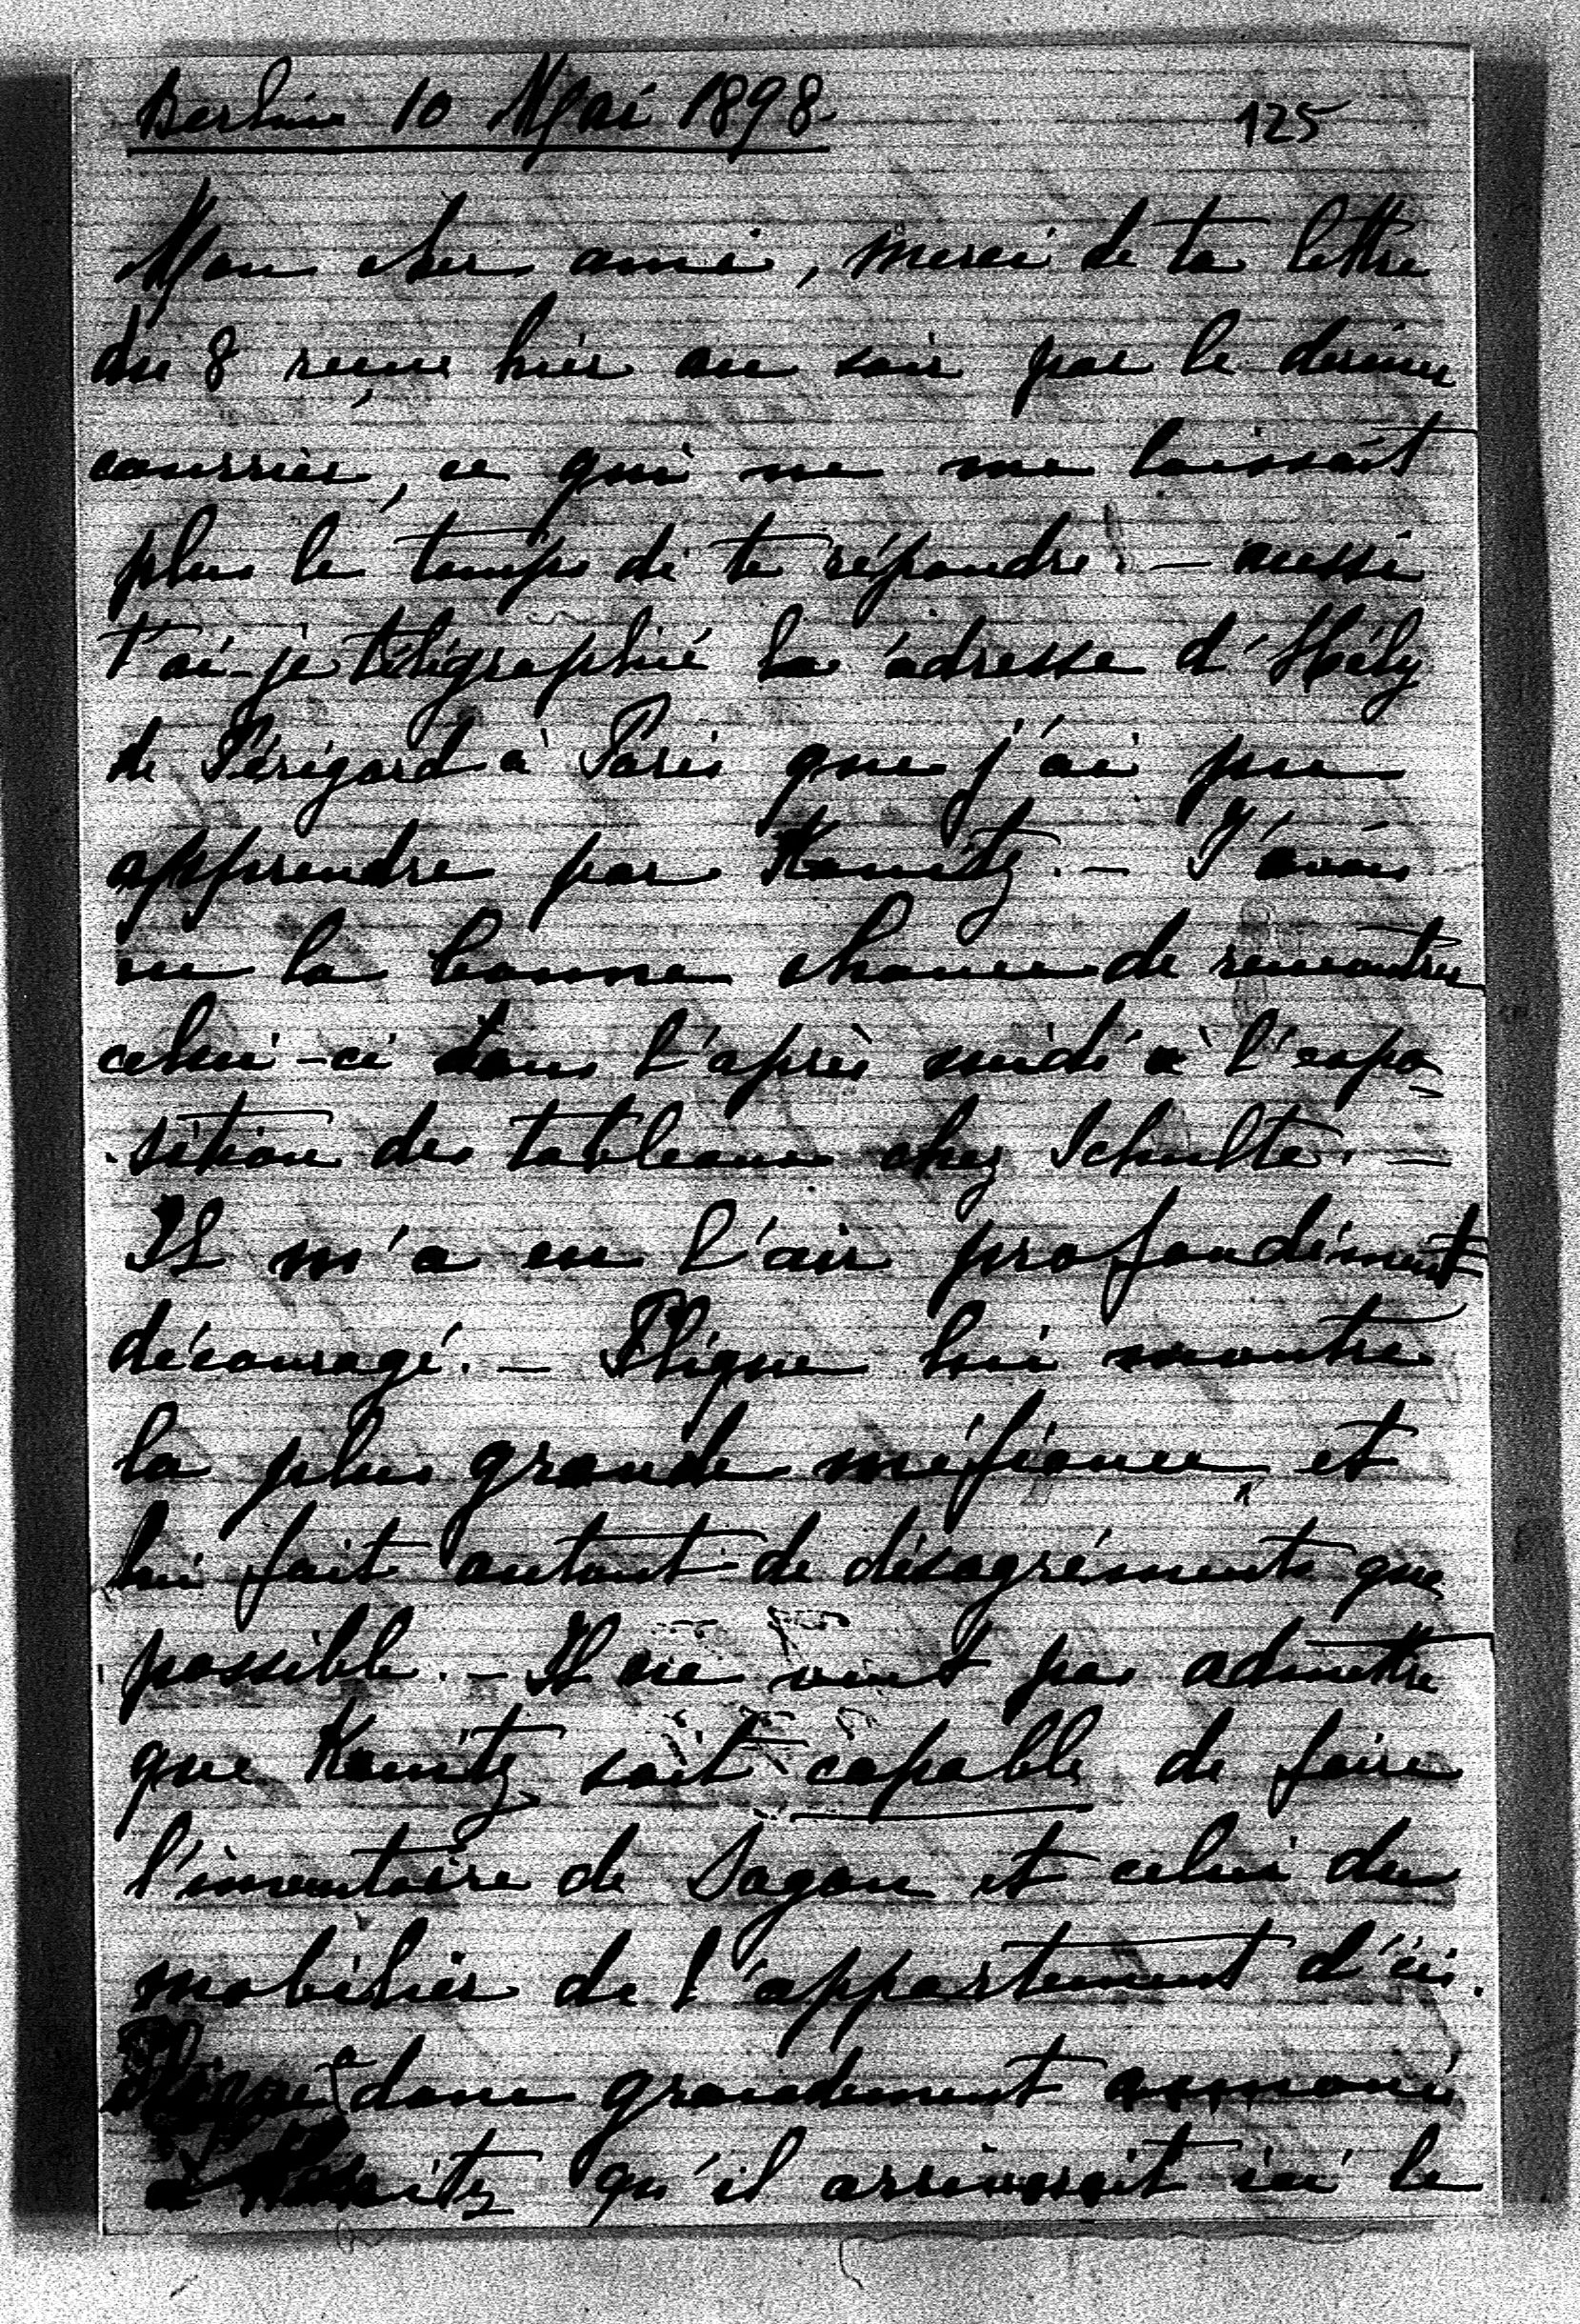 Berlin 10 Mai 1898.
125
Mon cher ami, merci de ta lettre
du 8 reçue hier au soir par le dernier
courrier, ce qui ne me laissait
plus le temps de te répondre. — aussi
t'ai-je télégraphié la adresse d'Hély
de Périgord à Paris que j'ai pu
apprendre par Kanitz. — J'avais
eu la bonne chance de rencontrer
celui-ci dans l'après midi à l'expo
sition des tableaux chez Schulte. —
Il m'a eu l'air profondément
découragé. — Pligue lui montre
la plus grande méfiance, et
lui fait autant de désagréments que
possible. — Il ne veut pas admettre
que Kanitz soit capable de faire
l'inventaire de Sagan et celui du
mobilier de l'appartement d'ici.
a donc grandement annoncé
à Kanitz qu'il arriverait ici le